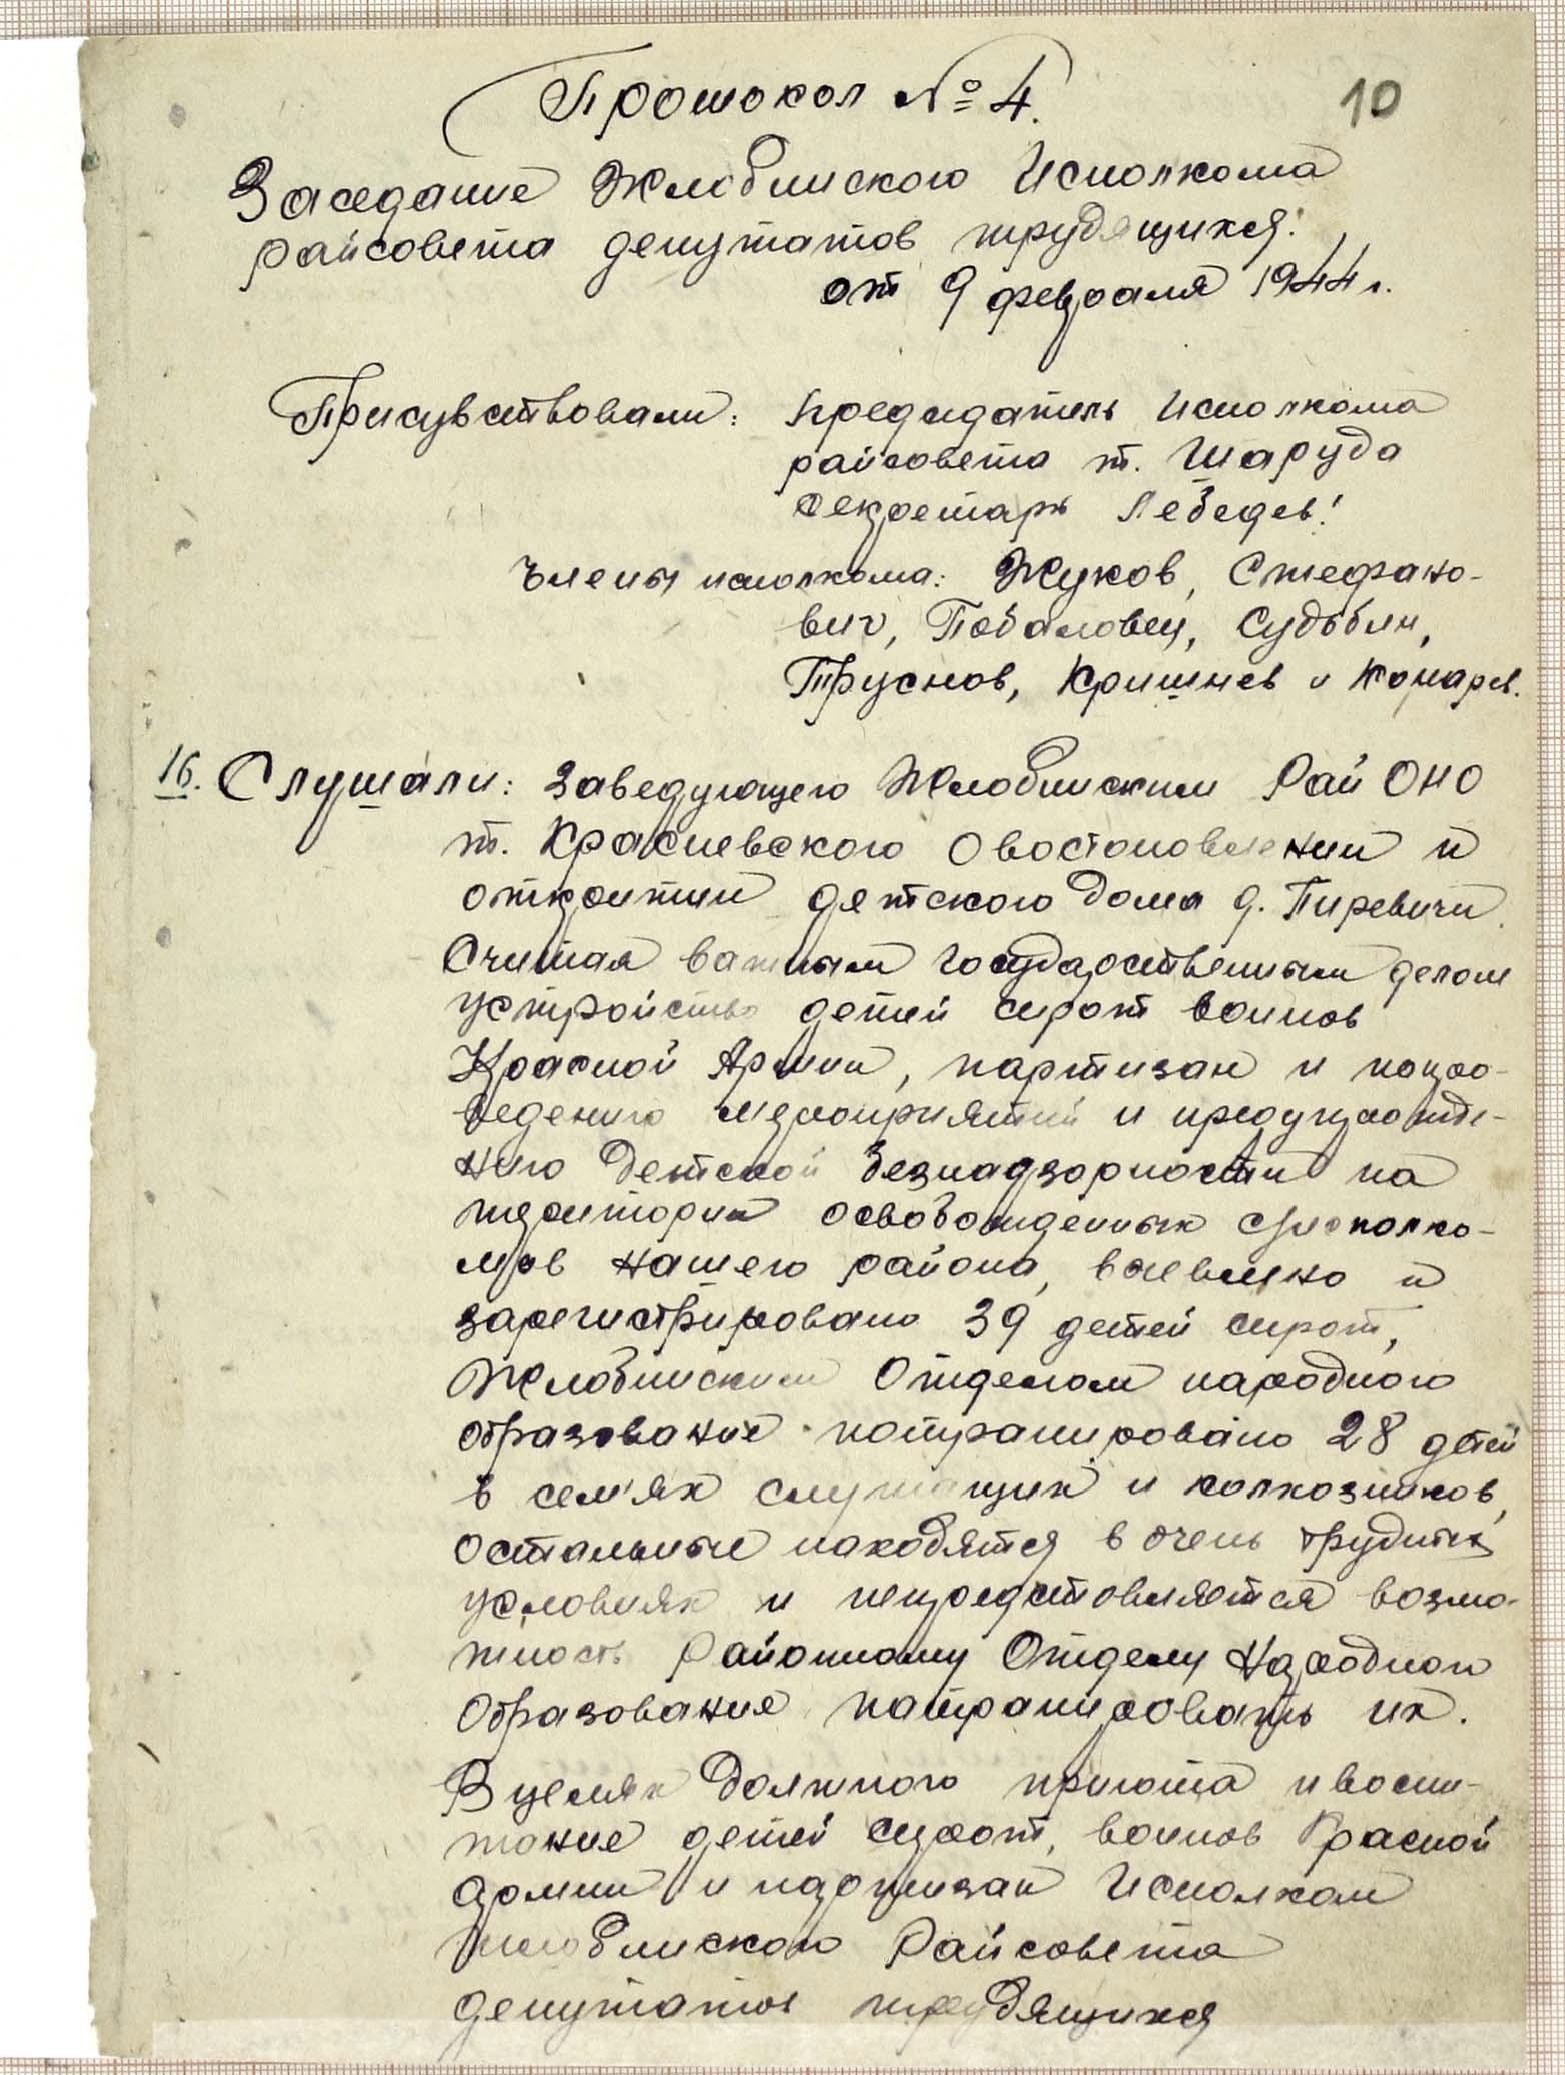 Протокол № 4.
10
Заседание Жлобинского Исполкома
райсовета депутатов трудящихся:
от 9 февраля 1944 г.
Присувствовали: Председатель Исполкома
райсовета т. Шаруда
секретарь Лебедев!
Члены исполкома: Жуков, Стефано-
вич, Побаловец, Судьбин,
Труснов, Кришнев и Комарев.
16. Слушали: Заведующего Жлобинским Рай ОНО
т. Красневского О востоновлении и
открытии детского дома д. Пиревичи.
Считая важным государственным делом
устройство детей сирот воинов
Красной Армии, партизан и попро-
ведению мероприятий и предупрожде-
нию Детской безнадзорности на
територии освобожденных с/исполко-
мов нашего района, выевлено и
зарегистрировано 39 детей сирот,
Жлобинским Отделом народного
образование потранировано 28 детей
в сем'ях служащих и колхозников,
остальные находятся в очень трудных
условиях и непредстовляется возмо-
жность Районному Отделу Народного
Образования патранировать их.
В целях Должного приюта и воспи-
тание детей сирот, воинов Красной
армии и партизан Исполком
Жлобинского Райсовета
депутатов трудящихся